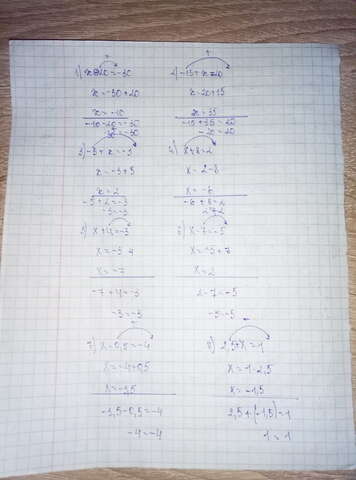 1) x-20=-30
x=-30+20
x=-10
-10-20=-30
-30=-30
2) -15+x=20
x=20+15
x=35
-15+35=20
20=20
3) -5+x=-3
x=-3+5
x=2
-5+2=-3
-3=-3
4) x+8=2
x=2-8
x=-6
-6+8=2
2=2
5) x+4=-3
x=-3-4
x=-7
-7+4=-3
-3=-3
6) x-7=-5
x=-5+7
x=2
2-7=-5
-5=-5
7) x-0,5=-4
x=-4+0,5
x=-3,5
-3,5-0,5=-4
-4=-4
8) 2,5+x=1
x=1-2,5
x=-1,5
2,5+(-1,5)=1
1=1